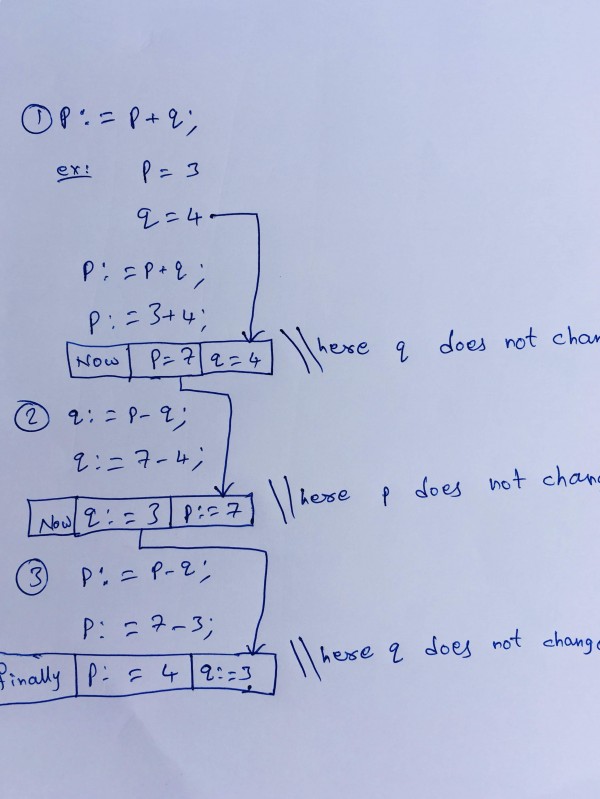 ① P := P + q;
ex: P = 3
q = 4
P := P + q;
P := 3 + 4;
Now P = 7 q = 4 \\ here q does not chan
② q := P - q;
q := 7 - 4;
Now q := 3 P := 7 \\ here p does not chang
③ P := P - q;
P := 7 - 3;
Finally P := 4 q := 3 \\ here q does not change